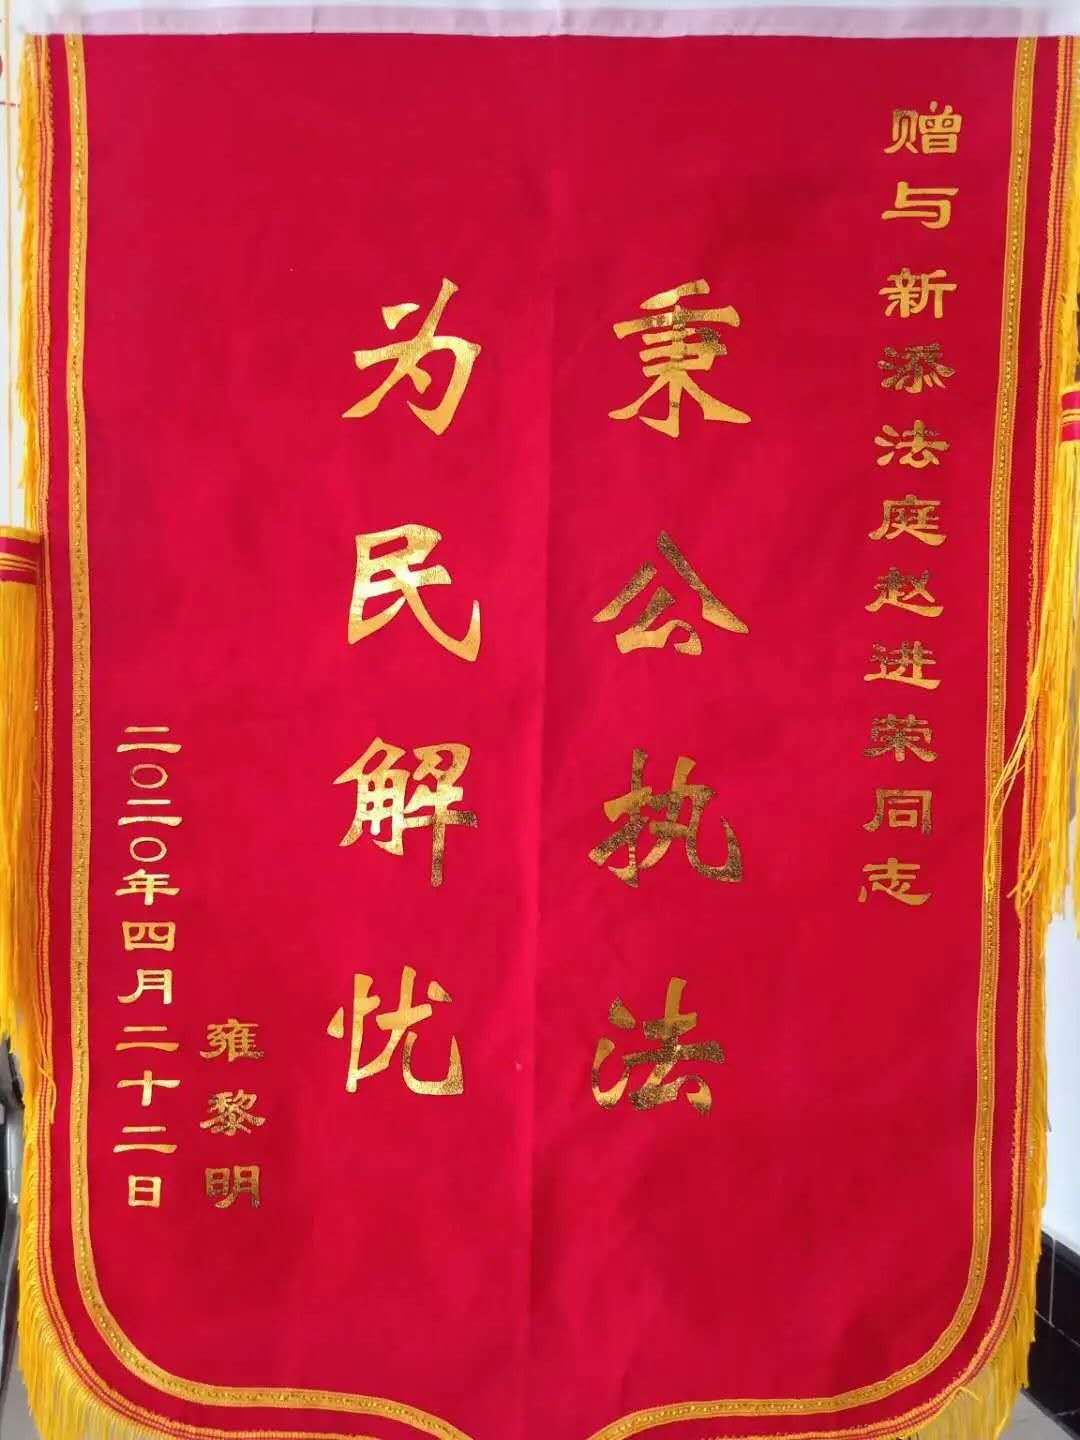 赠与新添法庭赵进荣同志
秉公执法
为民解忧
雍黎明
二〇二〇年四月二十二日